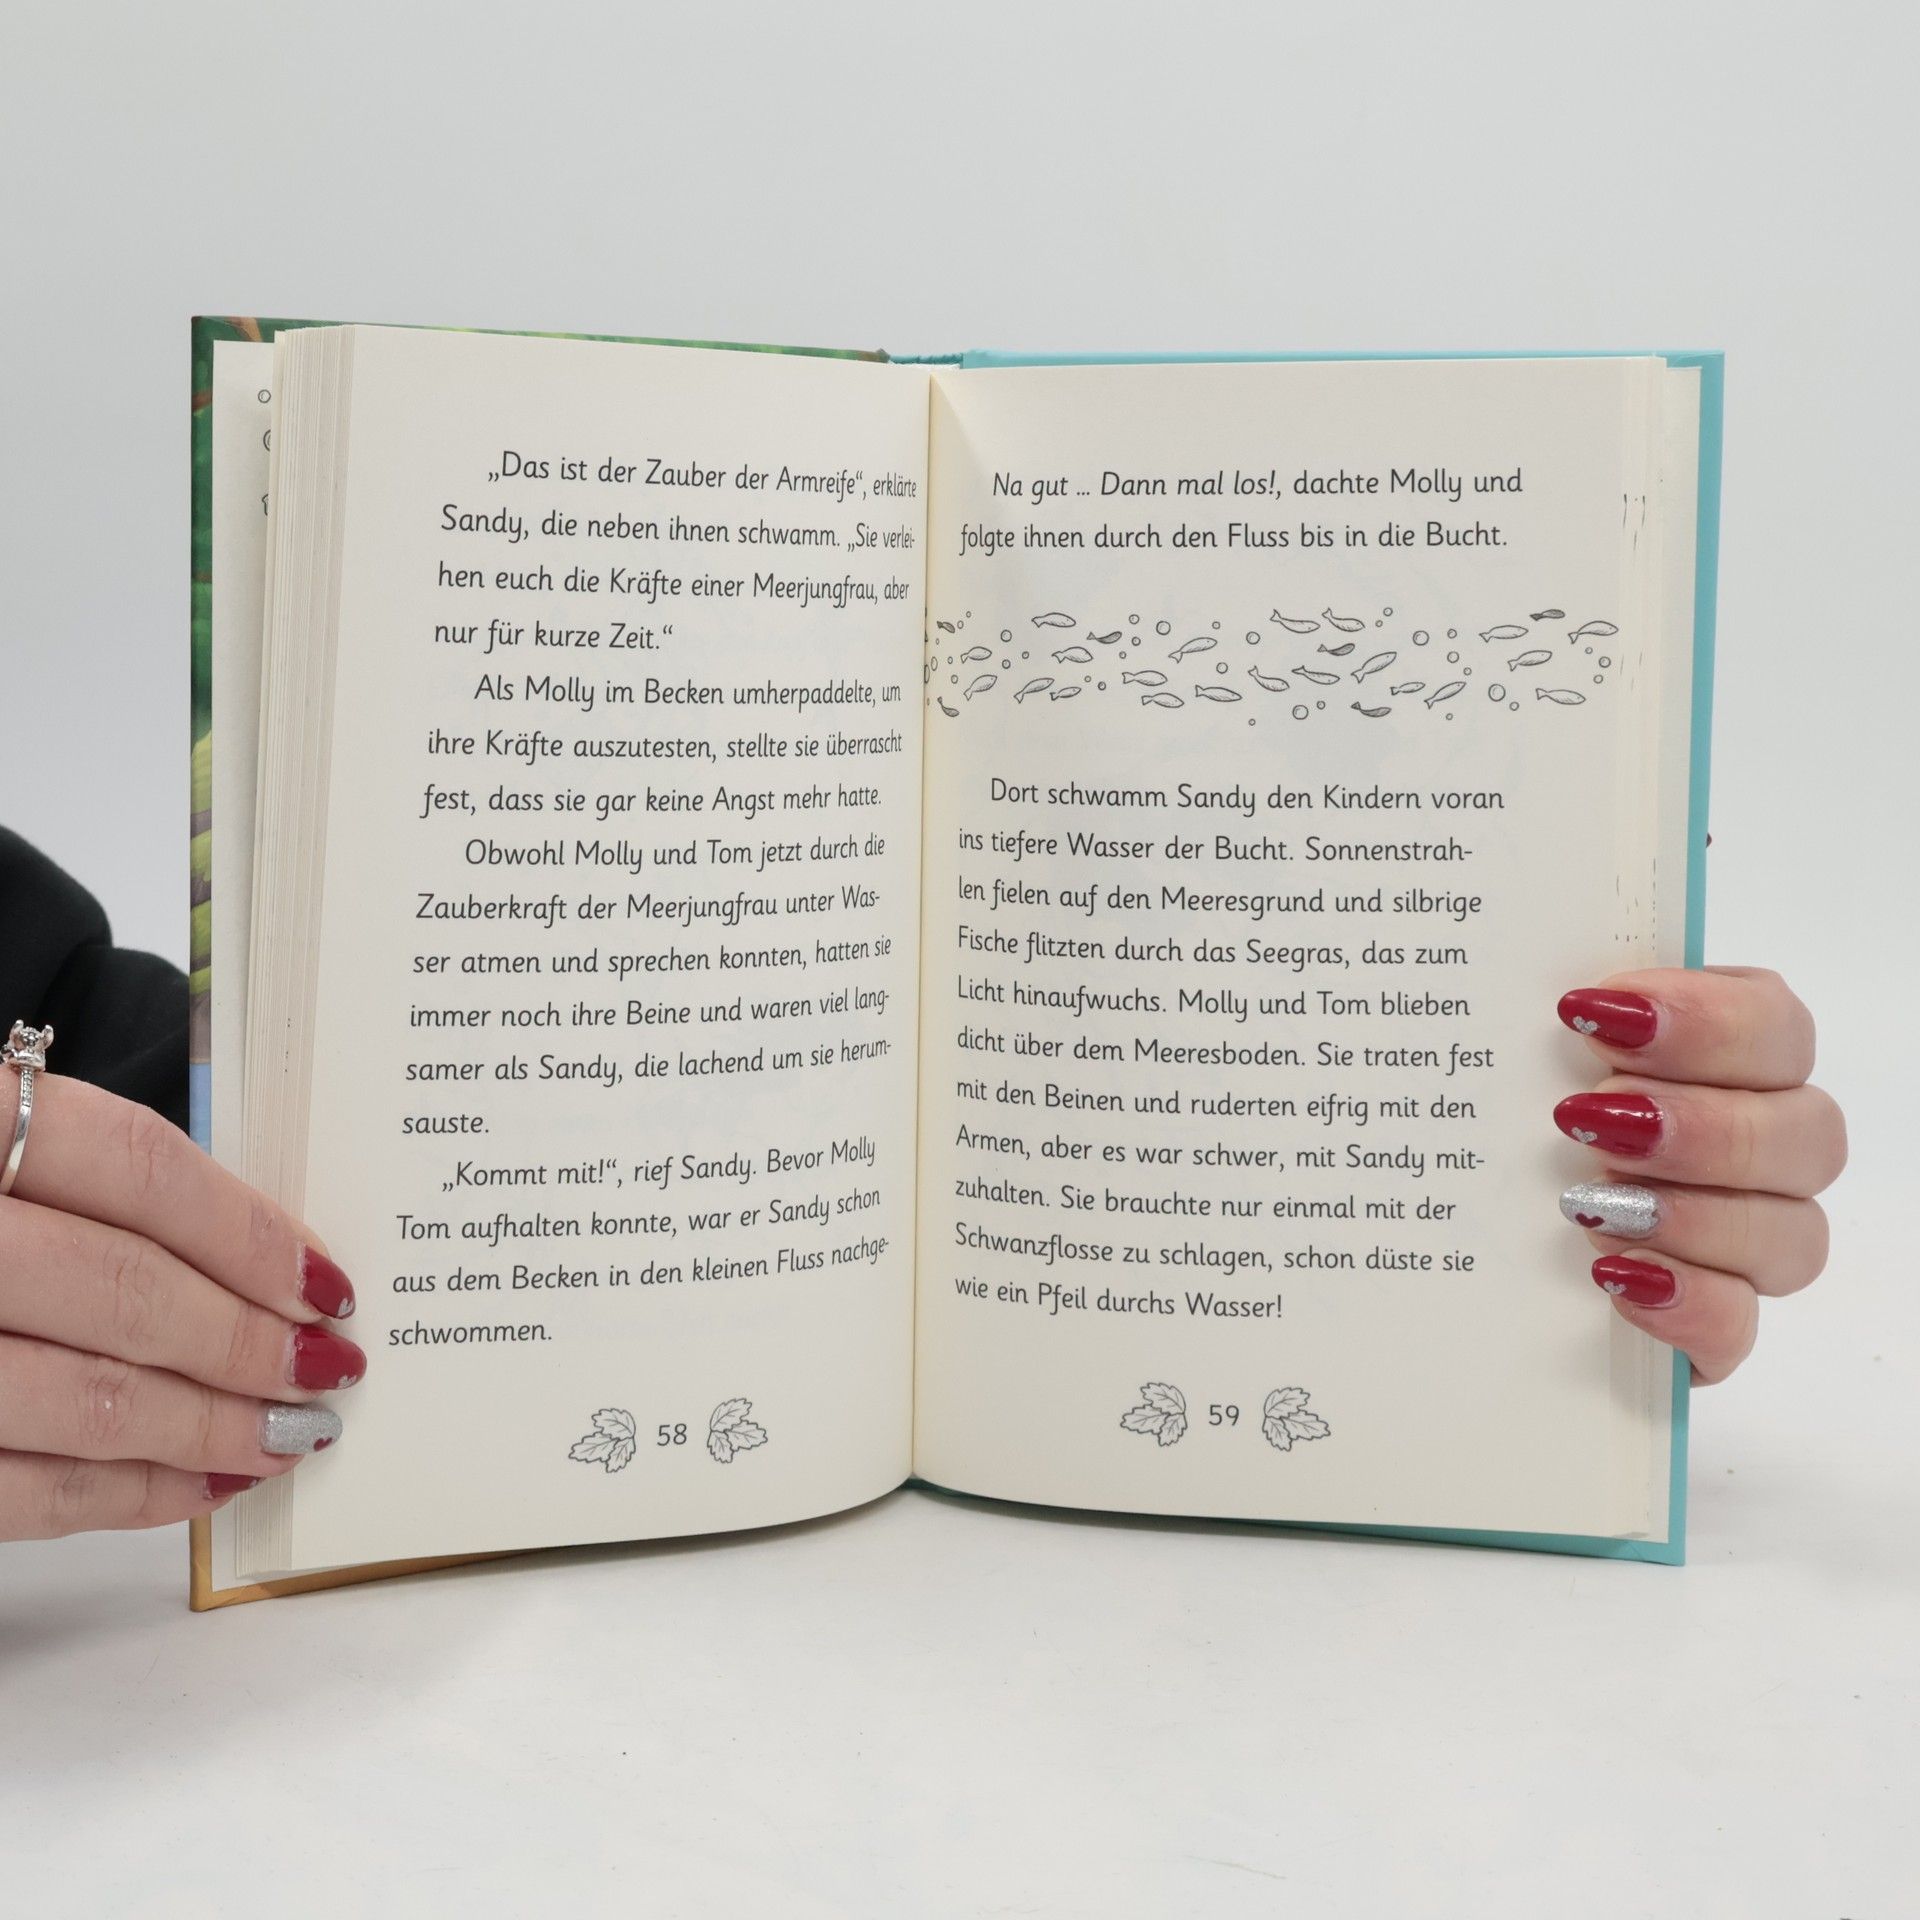 „Das ist der Zauber der Armreife“, erklärte
Sandy, die neben ihnen schwamm. „Sie verlei-
hen euch die Kräfte einer Meerjungfrau, aber
nur für kurze Zeit.“
Als Molly im Becken umherpaddelte, um
ihre Kräfte auszutesten, stellte sie überrascht
fest, dass sie gar keine Angst mehr hatte.
Obwohl Molly und Tom jetzt durch die
Zauberkraft der Meerjungfrau unter Was-
ser atmen und sprechen konnten, hatten sie
immer noch ihre Beine und waren viel lang-
samer als Sandy, die lachend um sie herum-
sauste.
„Kommt mit!“, rief Sandy. Bevor Molly
Tom aufhalten konnte, war er Sandy schon
aus dem Becken in den kleinen Fluss nachge-
schwommen.
58
Na gut ... Dann mal los!, dachte Molly und
folgte ihnen durch den Fluss bis in die Bucht.
Dort schwamm Sandy den Kindern voran
ins tiefere Wasser der Bucht. Sonnenstrah-
len fielen auf den Meeresgrund und silbrige
Fische flitzten durch das Seegras, das zum
Licht hinaufwuchs. Molly und Tom blieben
dicht über dem Meeresboden. Sie traten fest
mit den Beinen und ruderten eifrig mit den
Armen, aber es war schwer, mit Sandy mit-
zuhalten. Sie brauchte nur einmal mit der
Schwanzflosse zu schlagen, schon düste sie
wie ein Pfeil durchs Wasser!
59